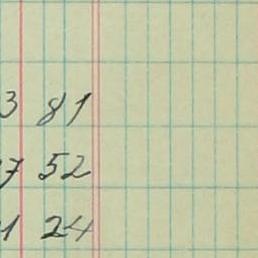 3 81
7 52
1 24